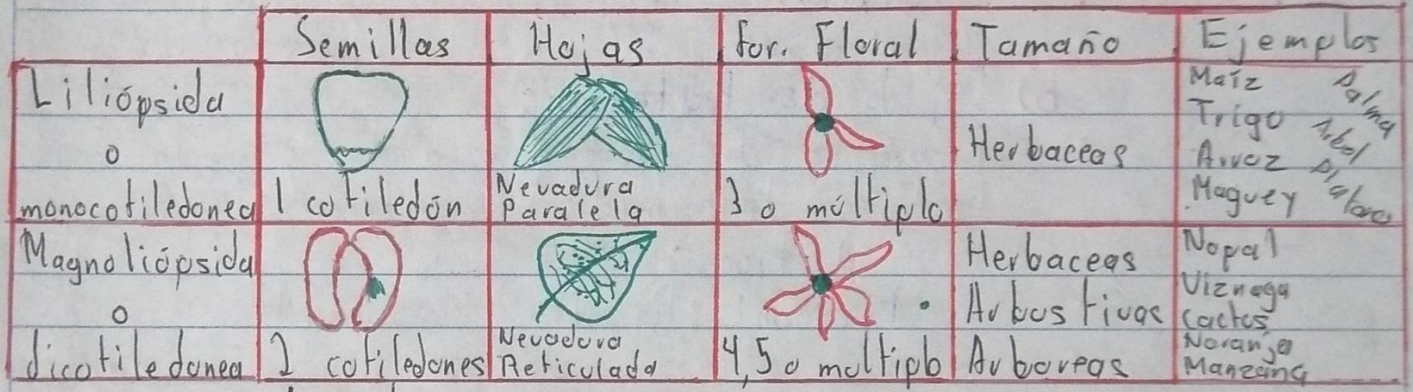 Semillas
Hojas
for. Floral
Tamaño
Ejemplos
Liliópsida
o
monocotiledonea
1 cotiledón
Nevadura
Paralela
3 o múltiplo
Herbaceas
Maíz
Trigo
Arroz
Maguey
Palma
Arbol
Magnoliópsida
o
dicotiledonea
2 cotiledones
Nevadura
Reticulada
4,5 o multiplo
Herbaceas
Arbustivas
Arboreas
Nopal
Viznaga
Cactus
Naranja
Manzana